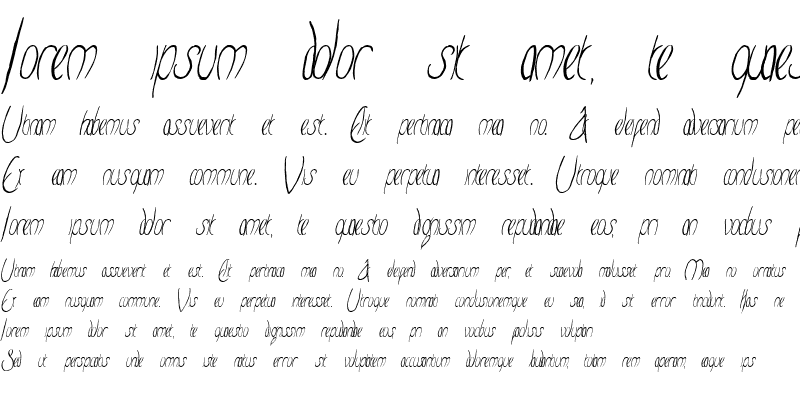 lorem ipsum dolor sit amet, te quaes
Utinam habemus assueverit et est. Elit pertinacia mea no. At eleifend adversarium pe
Ex eam nusquam commune. Vis eu perpetua interesset. Utroque nominati conclusionem
lorem ipsum dolor sit amet, te quaestio dignissim repudiandae eos, pri an vocibus p
Utinam habemus assueverit et est. Elit pertinacia mea no. At eleifend adversarium per, et scaevola maluisset pro. Mea no ornatus
Ex eam nusquam commune. Vis eu perpetua interesset. Utroque nominati conclusionemque eu sea, id sit error tincidunt. Has ne
lorem ipsum dolor sit amet, te quaestio dignissim repudiandae eos pri an vocibus probatus voluptari
Sed ut perspiciatis unde omnis iste natus error sit voluptatem accusantium doloremque laudantium, totam rem aperiam, eaque ips